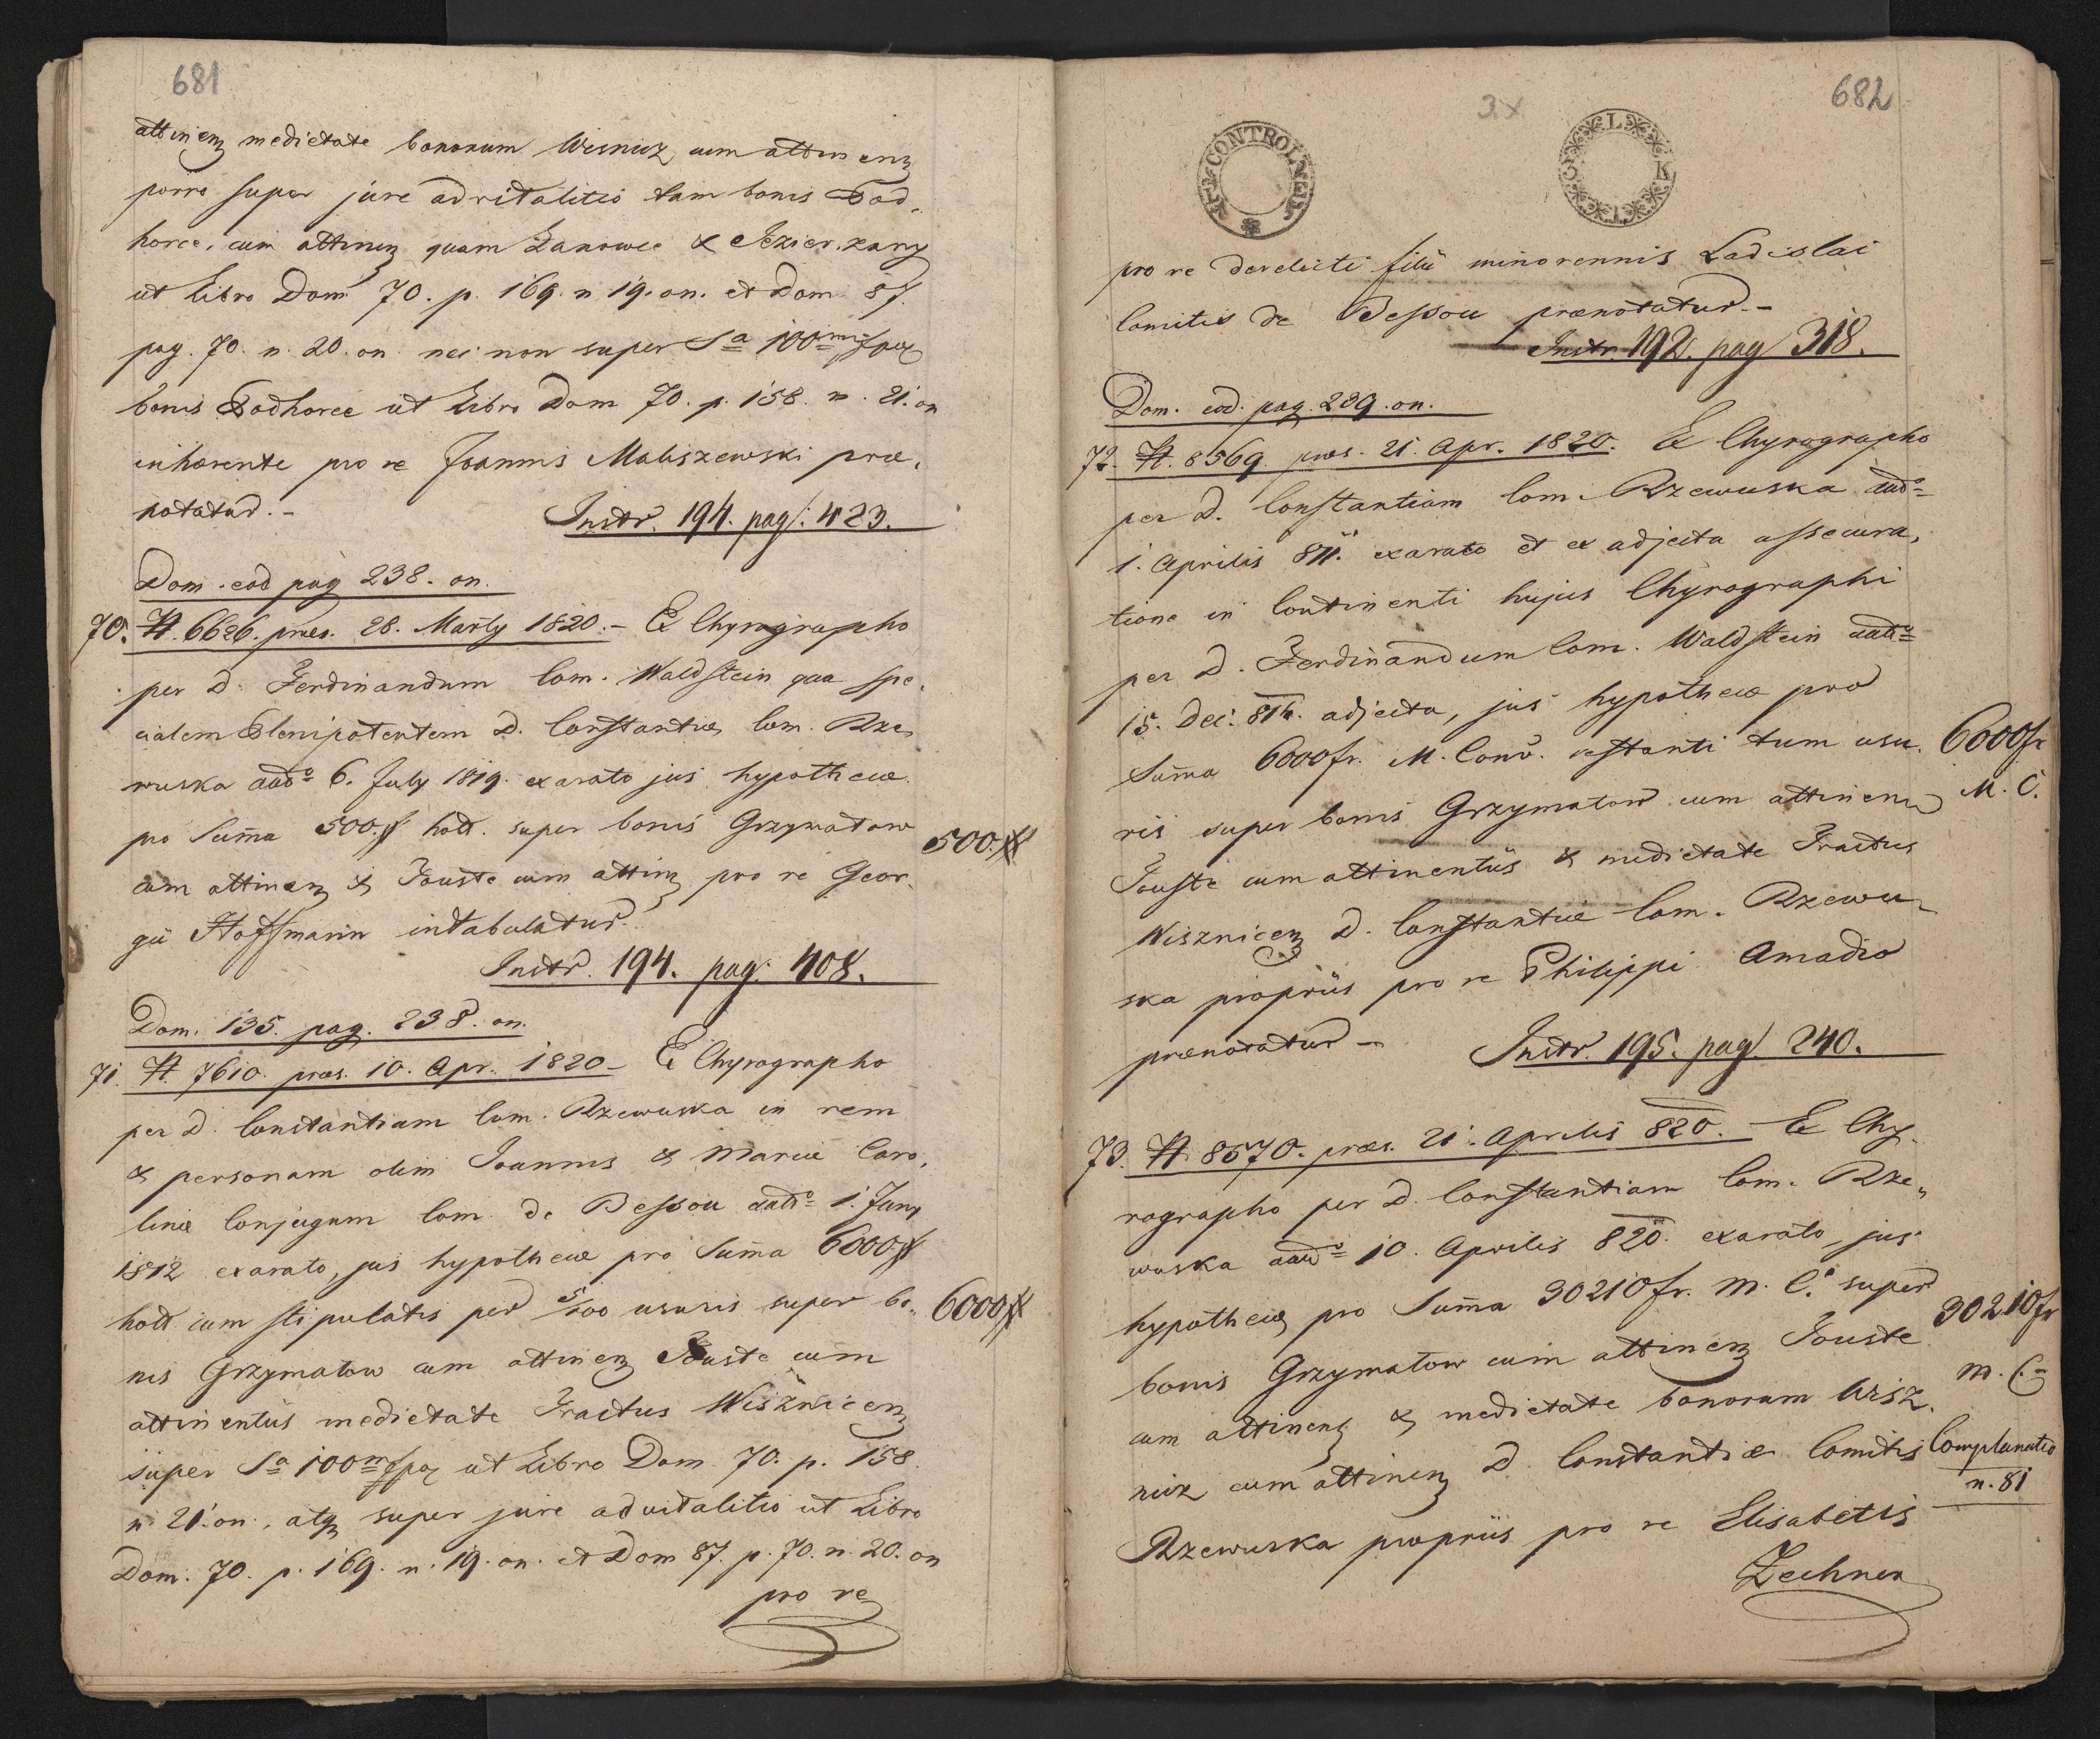 681
attinenz medietate bonorum Wisnicz cum attinenz
porro super jure advitalitio tam bonis Pod,
horce, cum attinenz quam Zanowce & Jezierzany
ut Libro Dom 70. p. 169. n 19. on. et Dom 87.
pag. 70. n. 20. on. nec non super Sa 100m fpol
bonis Podhorce ut Libro Dom 70. p. 158. n. 21. on
inhaerente pro re Joannis Maliszewski prae,
notatur.-
Instr. 194. pag. 423.
Dom. eod pag 238. on.
70. H. 6626. praes. 28. Marty 1820.- Ex Chyrographo
per D. Ferdinandum Com. Waldstein qua spe,
cialem Plenipotentem D. Constantiae Com. Rze,
wuska ddto 6. July 1819. exarato jus hypothecae
pro Summa 500.# holl. super bonis Grzymatow
500.#
cum attinenz & Touste cum attinz pro re Geor,
gii Hoffmann intabulatur.
Instr. 194. pag. 408.
Dom. 135. pag. 238. on.
71. H. 7610. praes. 10. Apr. 1820- Ex Chyrographo
per D. Constantiam Com. Rzewuska in rem
& personam olim Joannis & Mariae Caro,
linae Conjugum Com. de Dessou ddto 1. Juny
1812 exarato, jus hypothecae pro Summa 6000#
holl. cum stipulatis per 5/100 usuris super bo,
6000#
nis Grzymatow cum attinenz Touste cum
attinentiis medietate Tractus Wisznicenz
super Sa 100m fpol ut Libro Dom 70. p. 158.
n. 21. on., atq super jure advitalitio ut Libro
Dom. 70. p. 169. n. 19. on. et Dom 87. p. 70. n. 20. on
pro re
682
3x
CONTROL
3 L K
pro re derelicti filii minorennis Ladislai
Comitis de Dessou praenotatur.-
Instr. 192. pag 318.
Dom. eod. pag. 239. on.
72. H. 8569. praes. 21. Apr. 1820. Ex Chyrographo
per D. Constantiam Com. Rzewuska ddto
1. Aprilis 811. exarato et ex adjecta assecura,
tione in Continenti hujus Chyrographi
per D. Ferdinandum Com. Waldstein ddto
15. Dec. 816. adjecta, jus hypothecae pro
Summa 6000fr. M. Conv. restanti tum usu,
6000fr
M. C.
ris super bonis Grzymatow cum attinenz
Touste cum attinentiis & medietate Tractus
Wisznicenz D. Constantiae Com. Rzewu,
ska propriis pro re Philippi Amadio
praenotatur - Instr. 195. pag. 240.
73. H. 8570. praes. 21. Aprilis 820. - Ex Chy,
rographo per D. Constantiam Com. Rze,
wuska ddto 10. Aprilis 820. exarato, jus
hypothecae pro Summa 30210fr. M. C. super
30210fr
M. C.
bonis Grzymatow cum attinenz Touste
cum attinenz & medietate bonorum Wisz,
nicz cum attinenz D. Constantiae Comitis
Complanatio
n. 81
Rzewuska propriis pro re Elisabetis
Zechner